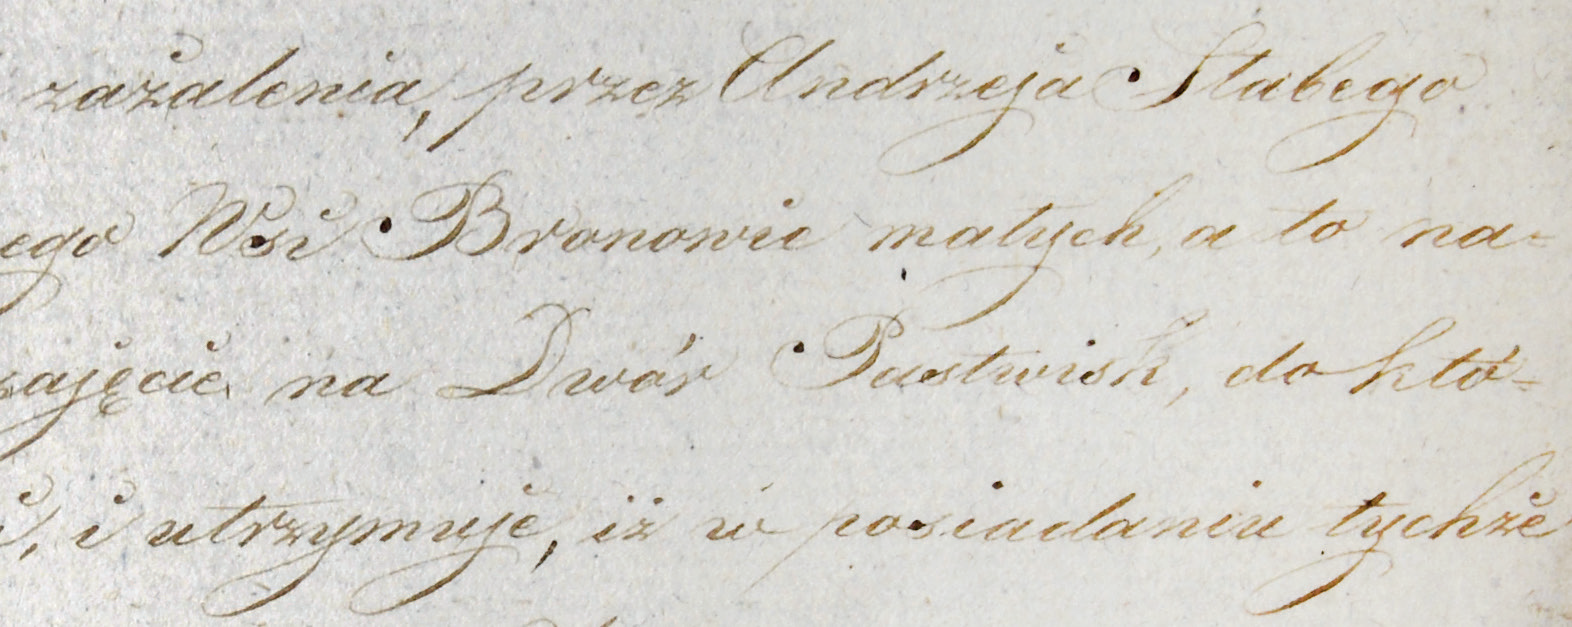 zażalenia, przez Andrzeja Słabego
ego Wsi Bronowic małych, a to na=
zajęcie na Dwór Pastwisk, do któ=
i, i utrzymuje, iż w posiadaniu tychże